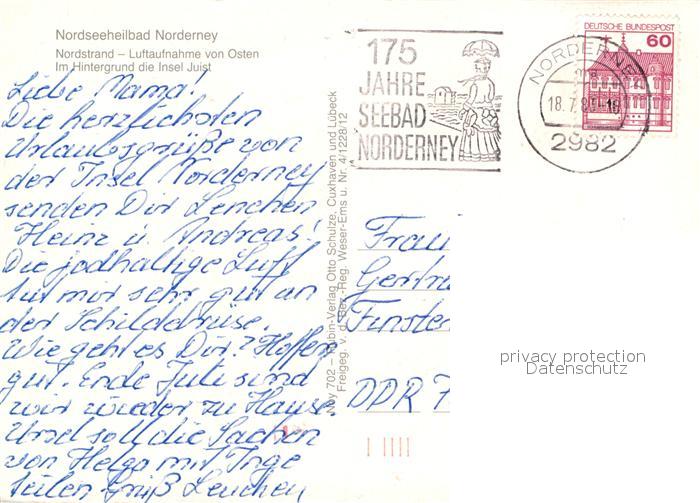 Nordseeheilbad Norderney
Nordstrand – Luftaufnahme von Osten
Im Hintergrund die Insel Juist
Liebe Mama!
Die herzlichsten
Urlaubsgrüße von
der Insel Norderney
senden Dir Lenchen
Heinz u. Andreas!
Die jodhaltige Luft
tut mir sehr gut an
der Schilddrüse.
Wie geht es Dir? Hoffen
gut. Ende Juli sind
wir wieder zu Hause.
Und soll die Sachen
von Helga mit Inge
teilen. Gruß Lenchen
Ney 702 – Rubin-Verlag Otto Schulze, Cuxhaven und Lübeck
Freigeg. v. d. Bez.-Reg. Weser-Ems u. Nr. 4/1228/12
175
JAHRE
SEEBAD
NORDERNEY
NORDERNEY
18.7.8
2982
DEUTSCHE BUNDESPOST
60
Frau
Gertru
Finster
DDR 7
privacy protection
Datenschutz